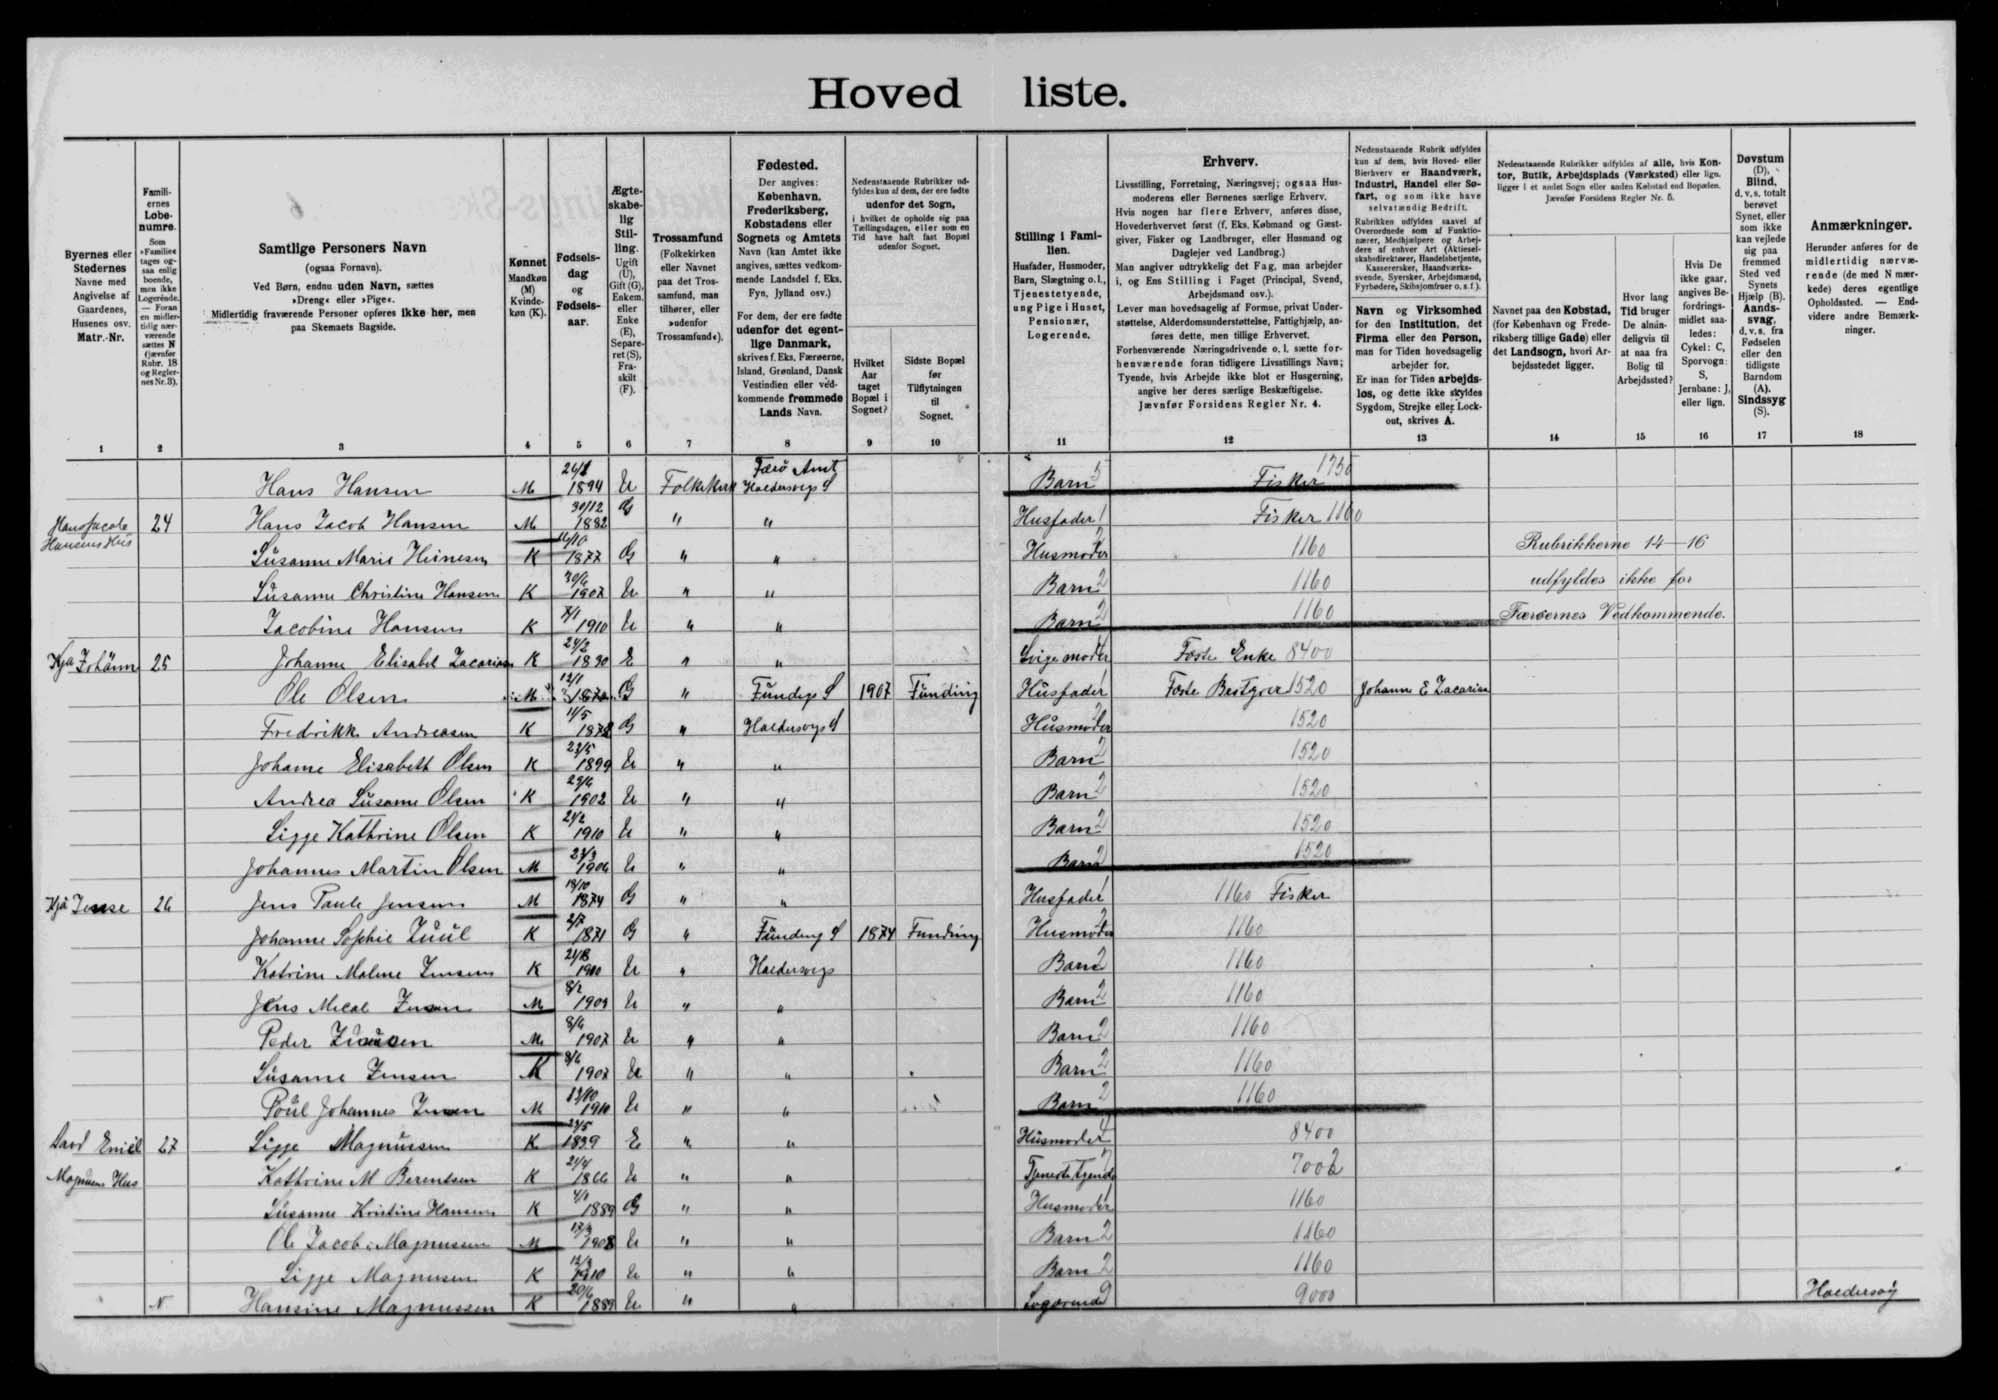 Hoved liste.
Byernes eller Stedernes Navne med Angivelse af Gaardenes, Husenes osv. Matr.-Nr.
Familiernes Løbenumre.
Som »Familie« tages ogsaa enlig boende, men ikke Logerende. — Foran en midlertidig nærværende sættes N (jævnfør Rubr. 18 og Regler-nes Nr. 3).
Samtlige Personers Navn
(ogsaa Fornavn).
Ved Børn, endnu uden Navn, sættes
»Dreng« eller »Pige«.
Midlertidig fraværende Personer opføres ikke her, men
paa Skemaets Bagside.
Kønnet
Mandkøn (M) Kvindekøn (K).
Fødselsdag og Fødselsaar.
Ægteskabelig Stilling.
Ugift (U), Gift (G), Enkem. eller Enke (E), Separeret (S), Fraskilt (F).
Trossamfund
(Folkekirken eller Navnet paa det Trossamfund, man tilhører, eller »udenfor Trossamfund«).
Fødested.
Der angives: København, Frederiksberg, Købstadens eller Sognets og Amtets Navn (kan Amtet ikke angives, sættes vedkommende Landsdel f. Eks. Fyn, Jylland osv.)
For dem, der ere fødte udenfor det egentlige Danmark, skrives f. Eks. Færøerne, Island, Grønland, Dansk Vestindien eller vedkommende fremmede Lands Navn.
Nedenstaaende Rubrikker udfyldes kun af dem, der ere fødte udenfor det Sogn, i hvilket de opholde sig paa Tællingsdagen, eller som en Tid have haft fast Bopæl udenfor Sognet.
Hvilket Aar taget Bopæl i Sognet?
Sidste Bopæl før Tilflytningen til Sognet.
Stilling i Familien.
Husfader, Husmoder, Barn, Slægtning o. l., Tjenestetyende, ung Pige i Huset, Pensionær, Logerende.
Erhverv.
Livsstilling, Forretning, Næringsvej; ogsaa Husmoderens eller Børnenes særlige Erhverv.
Hvis nogen har flere Erhverv, anføres disse, Hovederhvervet først (f. Eks. Købmand og Gæstgiver, Fisker og Landbruger, eller Husmand og Daglejer ved Landbrug.)
Man angiver udtrykkelig det Fag, man arbejder i, og Ens Stilling i Faget (Principal, Svend, Arbejdsmand osv.).
Lever man hovedsagelig af Formue, privat Understøttelse, Alderdomsunderstøttelse, Fattighjælp, anføres dette, men tillige Erhvervet.
Forhenværende Næringsdrivende o. l. sætte forhenværende foran tidligere Livsstillings Navn; Tyende, hvis Arbejde ikke blot er Husgerning, angive her deres særlige Beskæftigelse.
Jævnfør Forsidens Regler Nr. 4.
Nedenstaaende Rubrik udfyldes kun af dem, hvis Hoved- eller Bierhverv er Haandværk, Industri, Handel eller Søfart, og som ikke have selvstændig Bedrift.
Rubrikken udfyldes saavel af Overordnede som af Funktionærer, Medhjælpere og Arbejdere af enhver Art (Aktieselskabsdirektører, Handelsbetjente, Kasserersker, Haandværkssvende, Syersker, Arbejdsmænd, Fyrbødere, Skibsjomfruer o. s. f.).
Navn og Virksomhed for den Institution, det Firma eller den Person, man for Tiden hovedsagelig arbejder for.
Er man for Tiden arbejdsløs, og dette ikke skyldes Sygdom, Strejke eller Lockout, skrives A.
Nedenstaaende Rubrikker udfyldes af alle, hvis Kontor, Butik, Arbejdsplads (Værksted) eller lign. ligger i et andet Sogn eller anden Købstad end Bopælen.
Jævnfør Forsidens Regler Nr. 5.
Navnet paa den Købstad, (for København og Frederiksberg tillige Gade) eller det Landsogn, hvori Arbejdsstedet ligger.
Hvor lang Tid bruger De almindeligvis til at naa fra Bolig til Arbejdssted?
Hvis De ikke gaar, angives Befordringsmidlet saaledes: Cykel: C, Sporvogn: S, Jernbane: J, eller lign.
Døvstum (D), Blind, d. v. s. totalt berøvet Synet, eller som ikke kan vejlede sig paa fremmed Sted ved Synets Hjælp (B). Aandssvag, d. v. s. fra Fødselen eller den tidligste Barndom (A). Sindssyg (S).
Anmærkninger.
Herunder anføres for de midlertidig nærværende (de med N mærkede) deres egentlige Opholdssted. — Endvidere andre Bemærkninger.
1 2 3 4 5 6 7 8 9 10 11 12 13 14 15 16 17 18
Færø Amt
Hans Hansen M 1894 U Haldersvigs S Barn 5 Fisker
24 Hans Jacob Hansen M 30/12 1882 G " " Husfader 1 Fisker 1160
Susanne Marie Heinesen K 1877 G " " Husmoder 1160 Rubrikkerne 14-16
Susanne Christine Hansen K 30/6 1907 U " " Barn 2 1160 udfyldes ikke for
Jacobine Hansen K 1910 U " " Barn 2 1160 Færøernes Vedkommende.
25 Johanne Elisabet Zacariasen K 24/2 1830 E " " Svigemoder Føste Enke 8400
Ole Olsen M 12/1 G " Fundings S 1907 Funding Husfader 1 1520 Johanne E Zacarias
Fredrikke Andreasen K 11/5 1878 G " Haldersvigs S Husmoder 1520
Johane Elisabeth Olsen K 23/5 1899 U " " Barn 2 1520
Andrea Susanne Olsen K 29/6 1902 U " " Barn 2 1520
Sigge Kathrine Olsen K 21/2 1910 U " " Barn 2 1520
Johannes Martin Olsen M 1906 U " " Barn 2 1520
26 Jens Paule Jensen M 18/10 1874 G " " Husfader 1 1160 Fisker
Johanne Sophie Juul K 2/7 1871 G " Funding S 1874 Funding Husmoder 1160
Katrine Malene Jensen K 1900 U " Haldersvigs Barn 2 1160
Jens Mical Jensen M 8/2 1909 U " " Barn 2 1160
Peder Jensen M 8/6 1907 U " " Barn 2 1160
Susanne Jensen K 8/6 1907 U " " Barn 2 1160
Poul Johannes Jensen M 1910 U " " Barn 2 1160
27 Sigge Magnussen K 1839 E " " Husmoder 8400
Magnusens Hus Kathrine M Berentsen K 21/4 1866 U " " Tjenestetyende 7002
Susanne Kristine Hansen K 1889 G " " Husmoder 1160
Ole Jacob Magnussen M 1908 U " " Barn 2 1160
Sigge Magnusen K 1910 U " " Barn 2 1160
N Hansine Magnussen K 20/6 1889 U " " Logerende 9000 Haldersvig